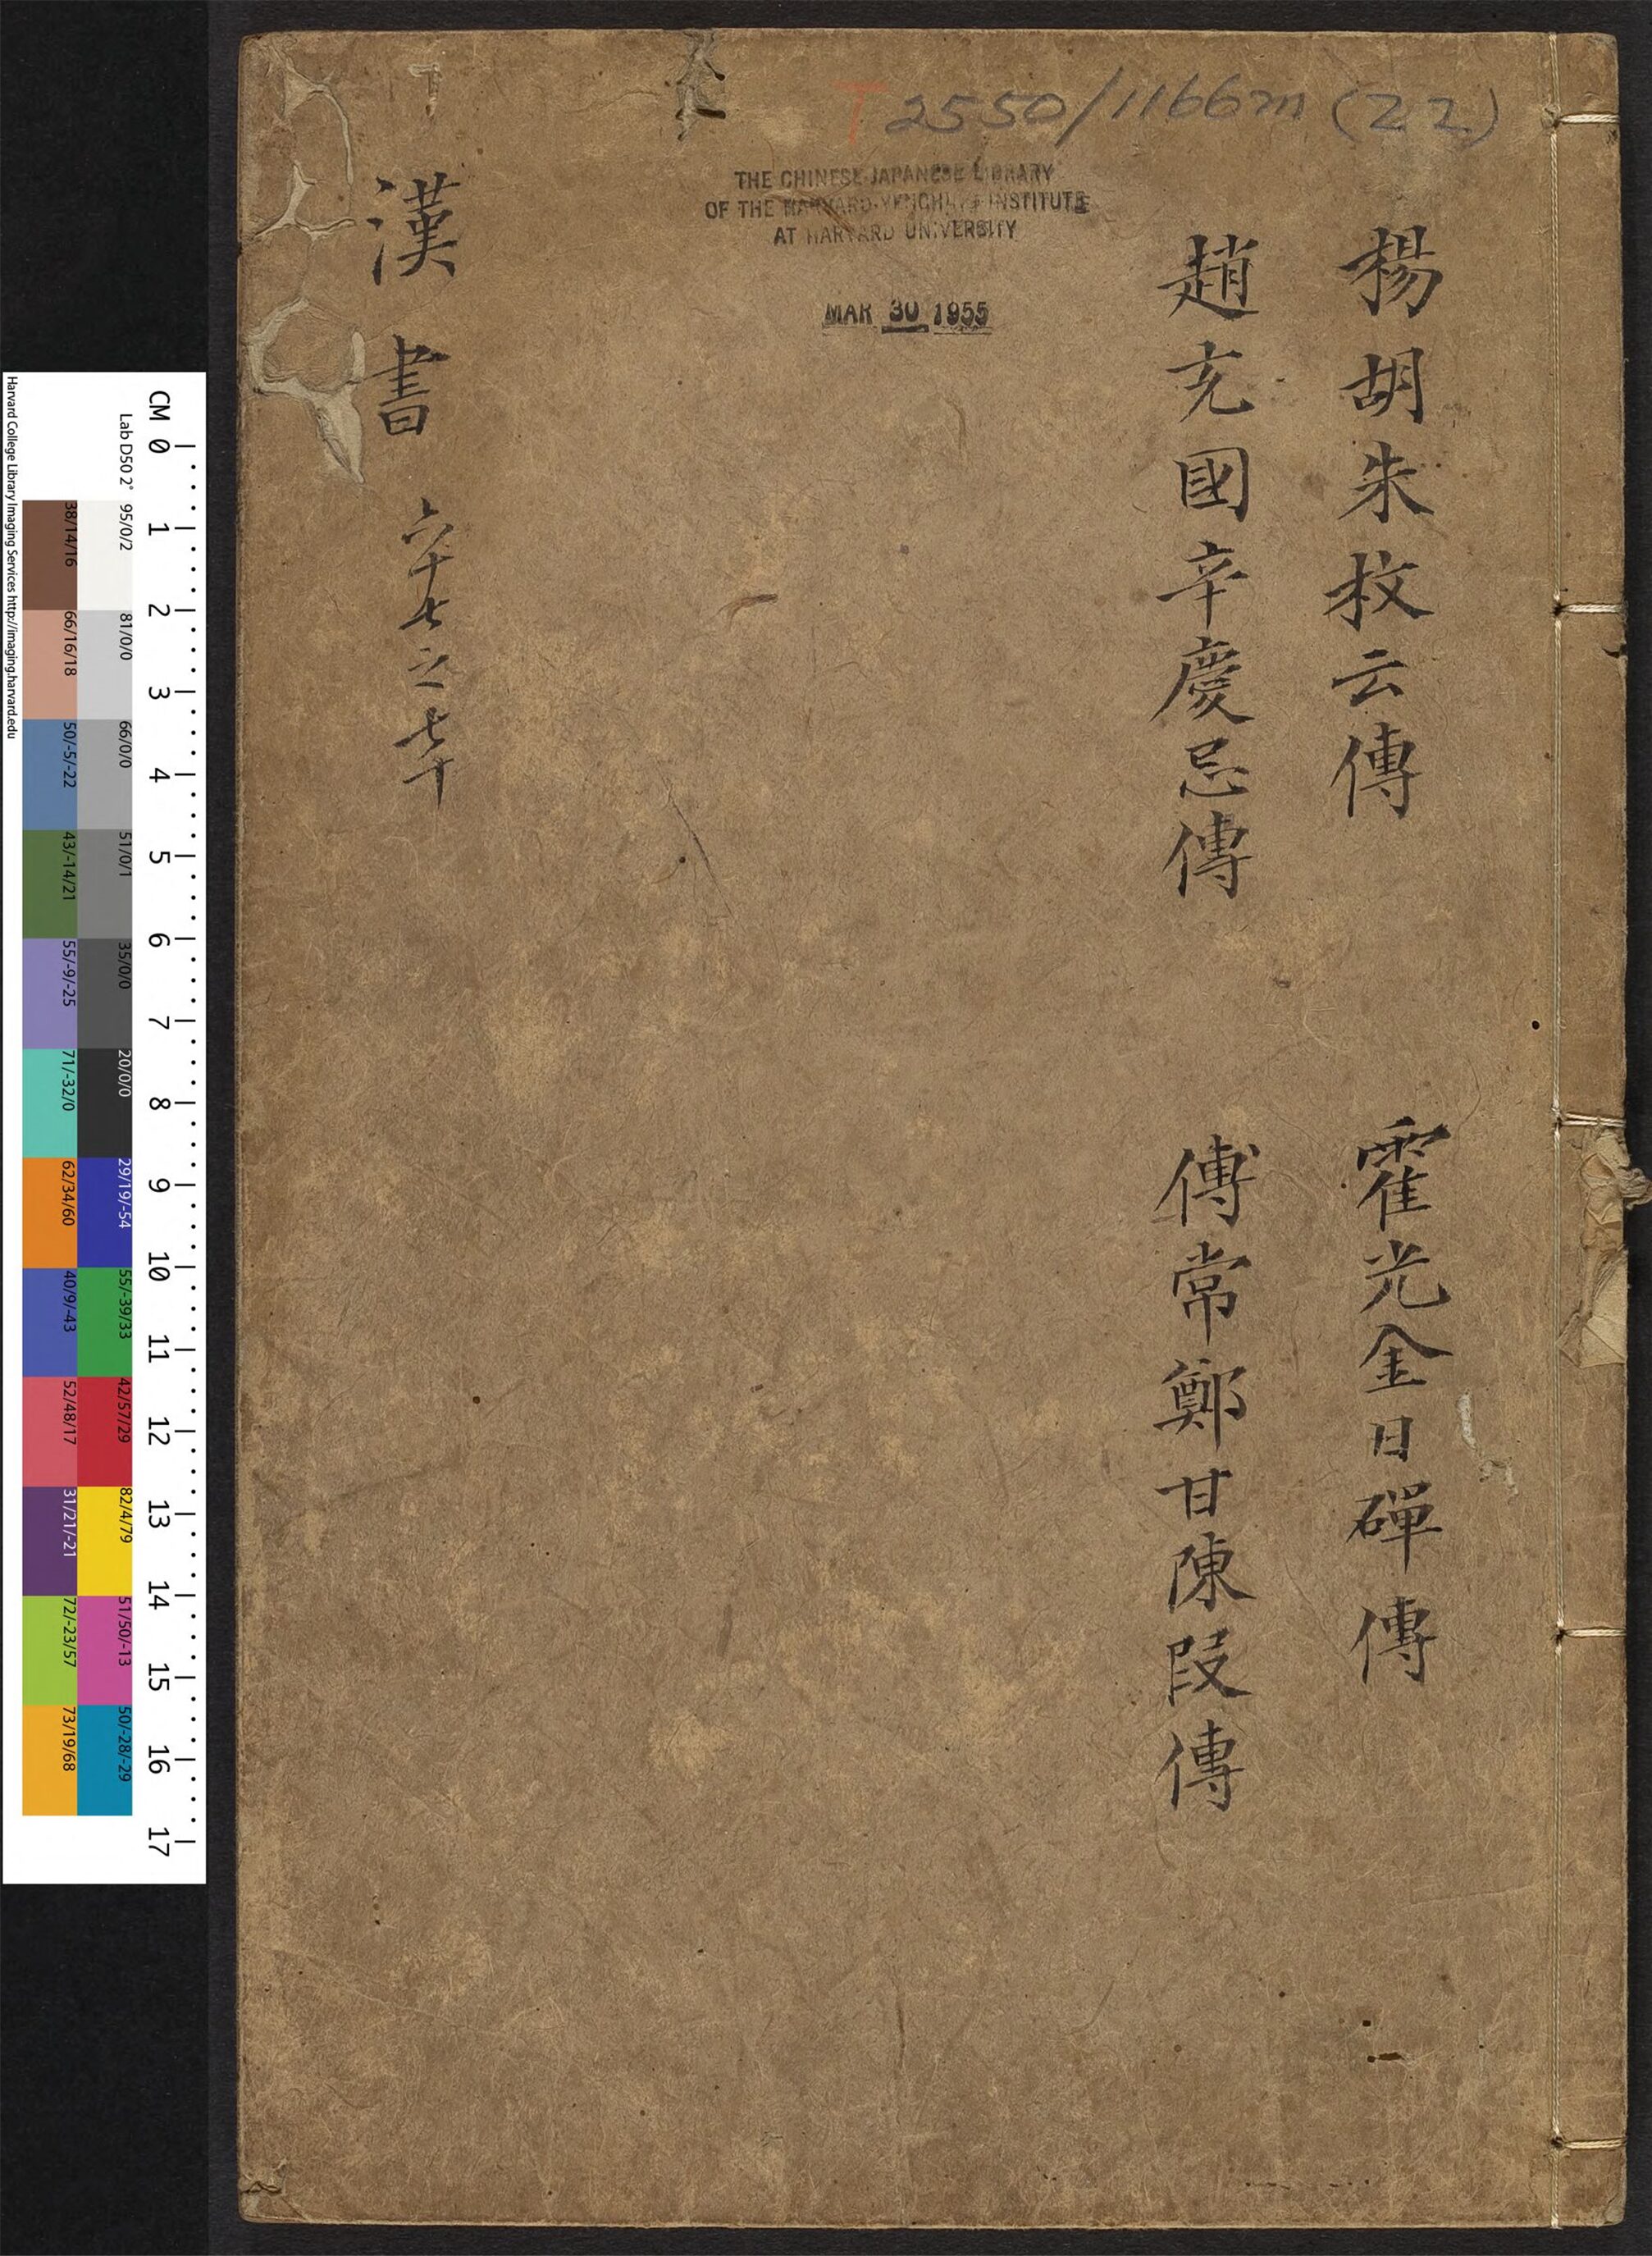 T 2550/1166m (22)
THE CHINESE-JAPANESE LIBRARY
OF THE HARVARD-YENCHING INSTITUTE
AT HARVARD UNIVERSITY
MAR 30 1955
楊胡朱枚云傳
霍光金日磾傳
趙充國辛慶忌傳
傅常鄭甘陳段傳
漢書 六十七之七十
CM 0 1 2 3 4 5 6 7 8 9 10 11 12 13 14 15 16 17
Lab D50 2° 95/0/2 81/0/0 66/0/0 51/0/1 35/0/0 20/0/0 29/19/-54 55/-39/33 42/57/29 82/4/79 51/50/-13 50/-28/-29
38/14/16 66/16/18 50/-5/-22 43/-14/21 55/-9/-25 71/-32/0 62/34/60 40/9/-43 52/48/17 31/21/-21 72/-23/57 73/19/68
Harvard College Library Imaging Services http://imaging.harvard.edu